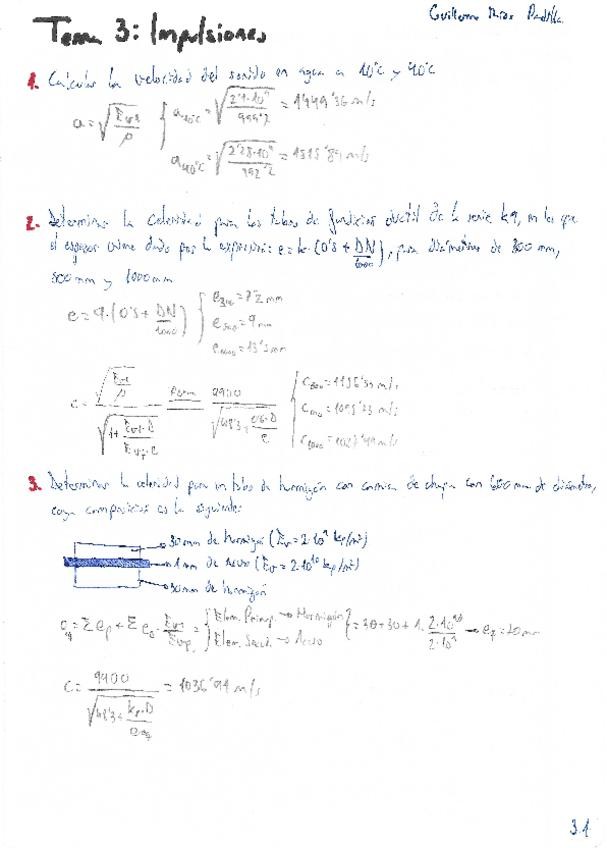 Guillermo Padilla
Tema 3: Impulsiones
1. Calcular la velocidad del sonido en agua a 10°C y 40°C
a = √(Ew/ρ) { a10°C = √(2'1·10⁹/999'7) = 1449'36 m/s
a40°C = √(2'28·10⁹/992'2) = 1515'89 m/s
2. Determinar la celeridad para los tubos de fundición dúctil de la serie k9, en los que
el espesor viene dado por la expresión: e = k·(0'5 + DN/1000), para diámetros de 300 mm,
500 mm y 1000 mm
e = 9·(0'5 + DN/1000) { e300 = 7'2 mm
e500 = 9 mm
e1000 = 13'5 mm
c = √(Ew/ρ) / √(1 + Ew·D/Ewp·e) 9900 / √(48'3 + 0'6·D/e) { c300 = m/s
c500 = m/s
c1000 = m/s
3. Determinar la celeridad para un tubo de hormigón con camisa de chapa con 600 mm de diámetro,
cuya composición es la siguiente:
30 mm de hormigón (Ew = 2·10⁹ kp/m²)
1 mm de acero (Ew = 2·10¹⁰ kp/m²)
30 mm de hormigón
eq = Σ ep + Σ es · = { Elem. Princip. → Hormigón
Elem. Secd. → Acero } = 30 + 30 + 1· 2·10¹⁰/2·10⁹ → = 70 mm
c = 9900 / √(48'3 + k·D/eq) = 1036'94 m/s
3.1